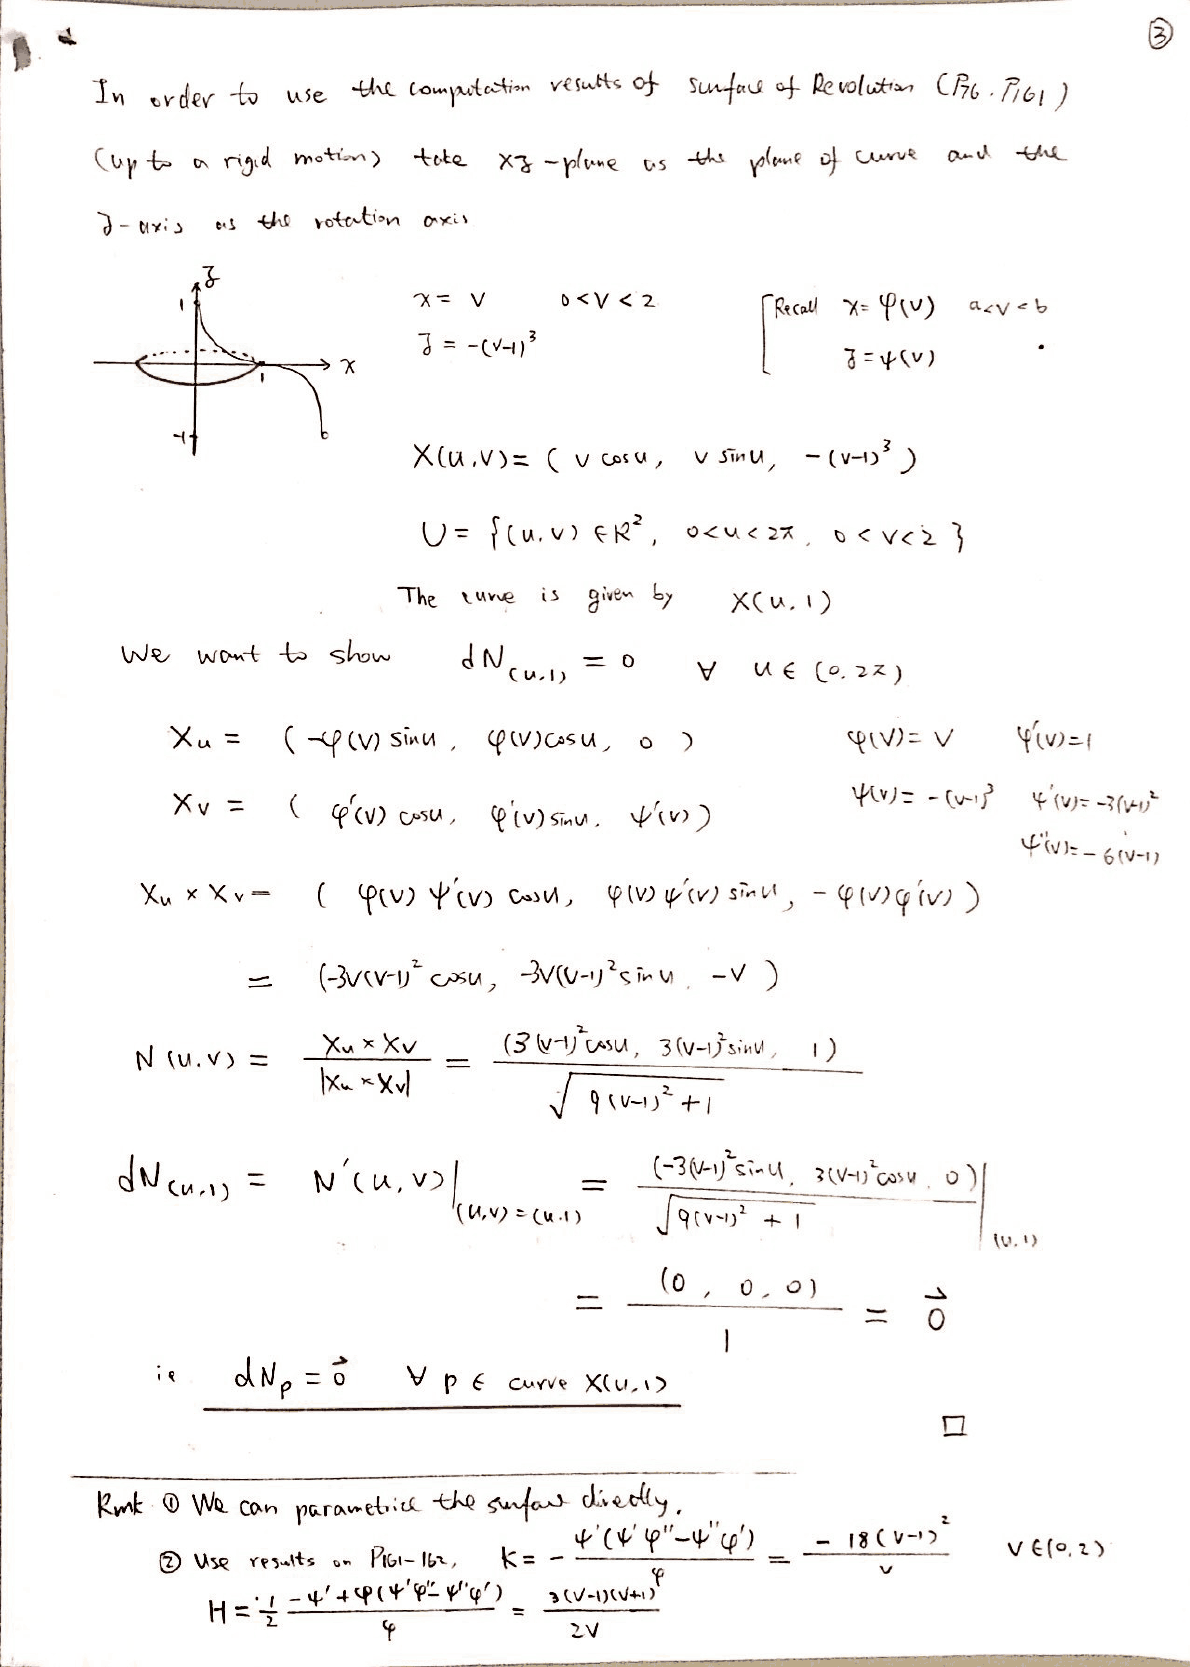 ③
In order to use the computation results of surface of Revolution (P76. P161)
(up to a rigid motion) take xz-plane as the plane of curve and the
z-axis as the rotation axis
z
1
x = v 0<v<2 [Recall x=φ(v) a<v<b
z = -(v-1)³ z=ψ(v)
x
1
-1
X(u,v)= (v cosu, v sinu, -(v-1)³)
U = {(u,v) ∈R², 0<u<2π, 0<v<2}
The curve is given by X(u,1)
We want to show dN(u,1) = 0 ∀ u∈ (0,2π)
Xu = (-φ(v) sinu, φ(v)cosu, 0) φ(v)= v φ'(v)=1
Xv = (φ'(v) cosu, φ'(v) sinu, ψ'(v)) ψ(v)= -(v-1)³ ψ'(v)= -3(v-1)²
ψ''(v)= -6(v-1)
Xu × Xv = (φ(v) ψ'(v) cosu, φ(v) ψ'(v) sinu, -φ(v)φ'(v))
= (-3v(v-1)² cosu, -3v(v-1)² sinu, -v)
N(u,v) = Xu × Xv / |Xu × Xv| = (3(v-1)² cosu, 3(v-1)² sinu, 1) / √9(v-1)² +1
dN(u,1) = N'(u,v)|(u,v)=(u,1) = (-3(v-1)² sinu, 3(v-1)² cosu, 0) / √9(v-1)² + 1 |(u,1)
= (0, 0, 0) / 1 = 0⃗
ie dNp = 0⃗ ∀ p ∈ curve X(u,1)
□
Rmk ① We can parametrice the surface directly,
② Use results on P161-162, K = - ψ'(ψ'φ''-ψ''φ') / φ = - 18(v-1)² / v v∈(0,2)
H = ½ -ψ'+φ(ψ'φ''-ψ''φ') / φ = 3(v-1)(v+1) / 2v